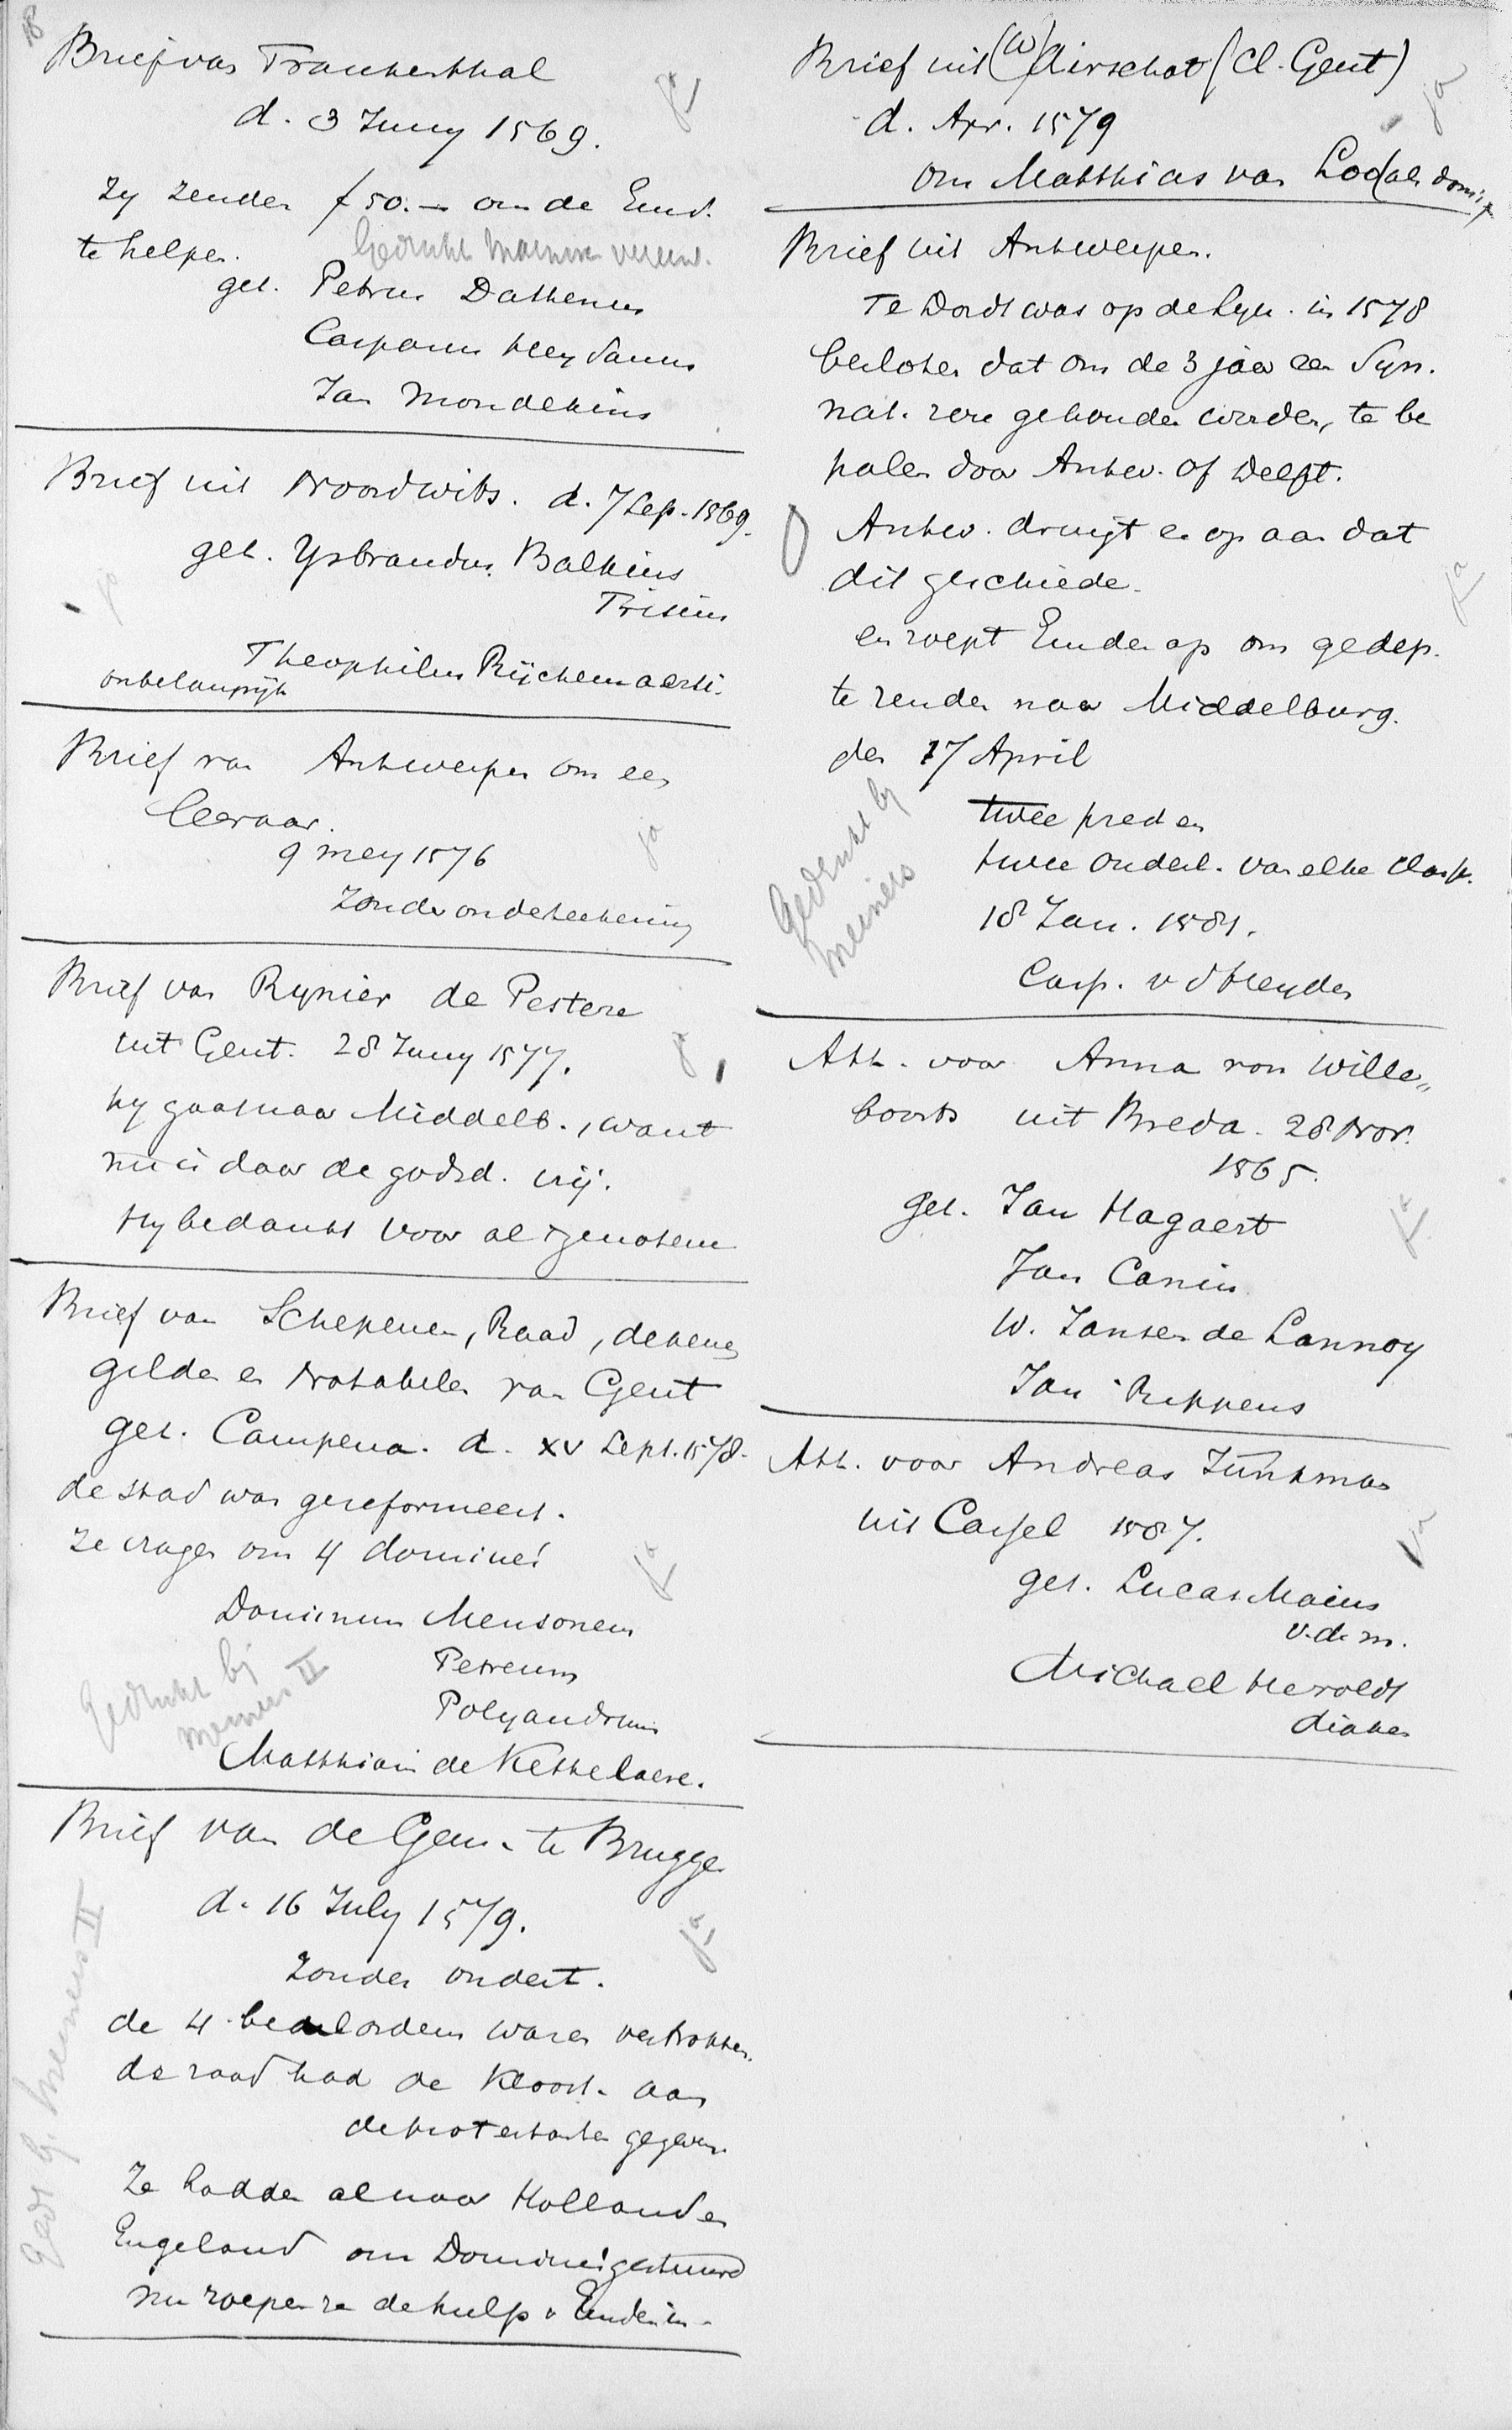 18
Brief van Frankenthal
d. 3 Juny 1569.
ja
Zy zenden f 50.— om de Emd.
te helpen.
get. Petrus Dathenus
Casparus Heydanus
Jan Mondekins
Brief uit Noordwits. d. 7 Sep. 1569.
get. Ysbrandus Balkius
Frisius
ja
Theophilus Rijckewaerti.
onbelangrijk
Brief van Antwerpen om een
leeraar.
9 mey 1576
ja
Zonder onderteekening
Brief van Rynier de Pestere
uit Gent. 28 Juny 1577.
ja
hy gaat naar Middelb., want
nu is daar de godsd. vrij.
Hy bedankt voor al 't genotene
Brief van Schepenen, Raad, dekenen
gilden en Notabelen van Gent
get. Campena. d. XV Sept. 1578.
de stad was gereformeert.
ze vragen om 4 dominé's
ja
Dominum Mensonem
Petreum
Polyandrum
Matthiam de Kethelaere.
Gedrukt bij
meiners II
Brief van de Gem. te Brugge
d. 16 July 1579.
ja
Zonder ondert.
de 4 bedelordens waren vertrokken.
de raad had de Kloost. aan
de protestanten gegeven.
Ze hadden al naar Holland en
Engeland om Dominé's gestuurd
nu roepen ze de hulp v. Emden in.
Gedr. bij meiners II
Brief uit (W) Airschot (Cl. Gent)
d. Apr. 1579
ja
om Matthias van Lo (als domine)
Brief uit Antwerpen.
Te Dordt was op de Syn. in 1578
besloten dat om de 3 jaar een Syn.
nat. zou gehouden worden, te be
palen door Antw. of Delft.
Antw. dringt er op aan dat
dit geschiede.
ja
en roept Emden op om gedep.
te zenden naar Middelburg.
den 17 April
twee pred en
twee ouderl. van elke Class.
18 Jan. 1581.
Casp. v d Heyden
Gedrukt bij
meiners
Att. voor Anna von Wille„
boorts uit Breda. 28 Nov.
1565.
get. Jan Hagaert
ja
Jan Canin
W. Jansen de Lannoy
Jan Rippens
Att. voor Andreas Junkman
uit Cassel 1587.
ja
get. Lucas Maius
v. d. m.
Michael Heroldt
diaken